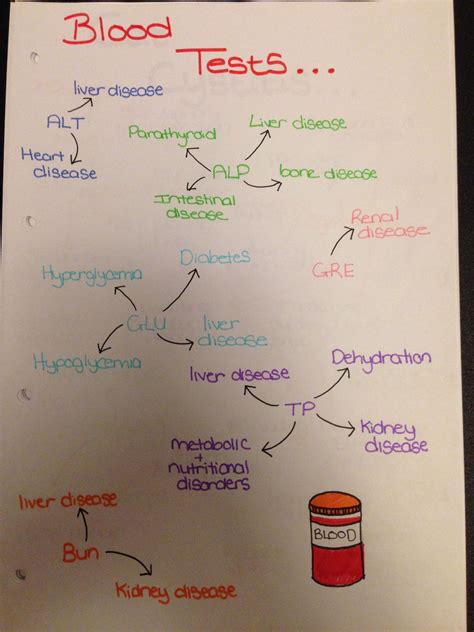 Blood
Tests...
liver disease
ALT
Heart
disease
Parathyroid
Liver disease
ALP
bone disease
Intestinal
disease
Renal
disease
GRE
Hyperglycemia
Diabetes
GLU
liver
disease
Hypoglycemia
liver disease
Dehydration
TP
Kidney
disease
metabolic
+
nutritional
disorders
liver disease
Bun
Kidney disease
BLOOD